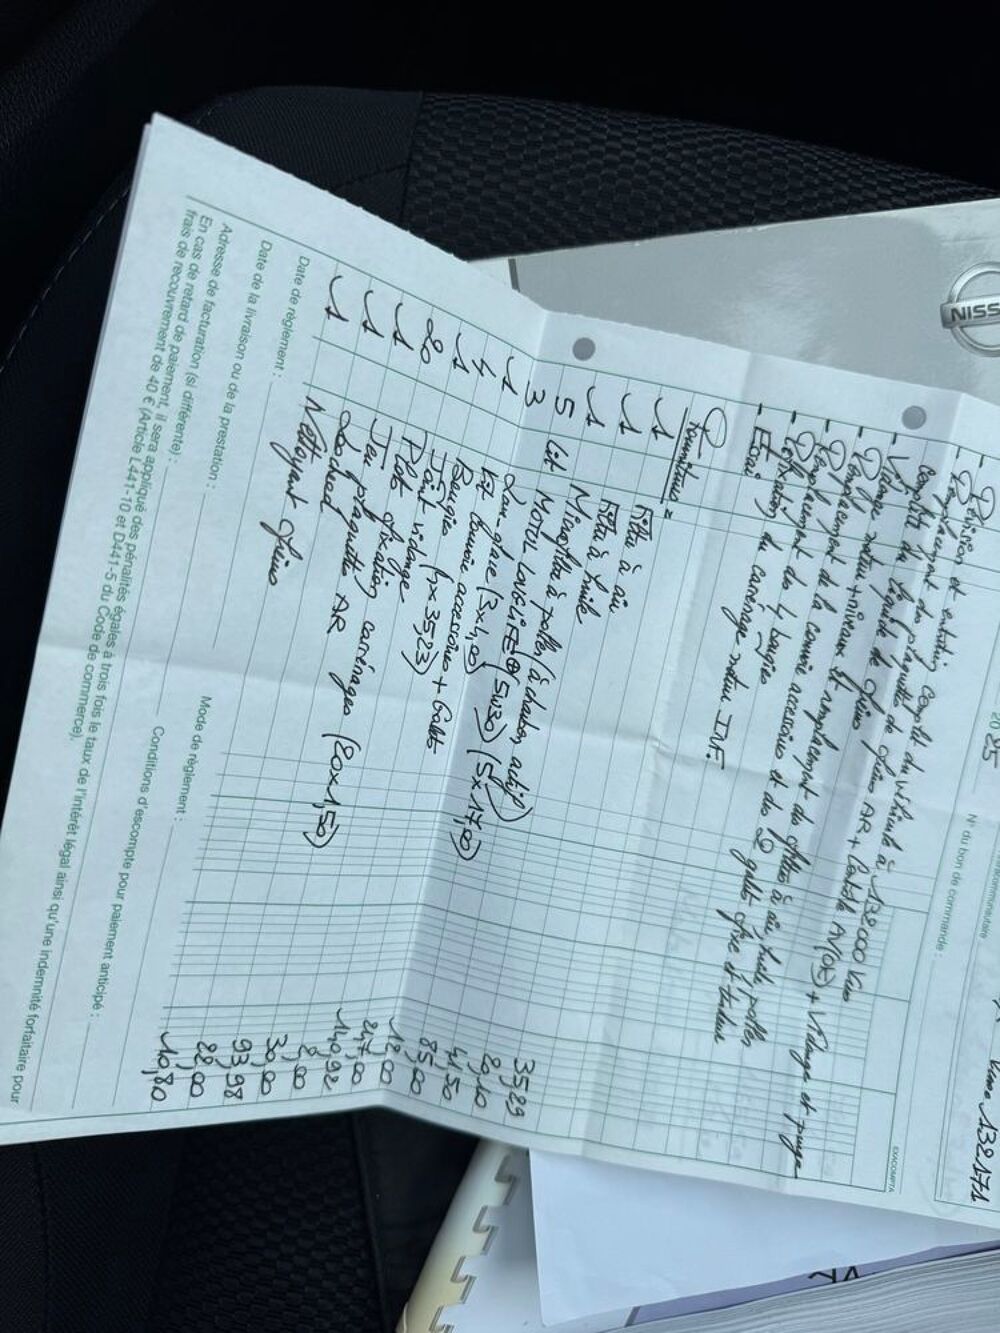 2025
N° du bon de commande :
Kms 132171
EXACOMPTA
- Révision et entretien complet du véhicule à 132000 Kms
- Remplacement des plaquettes de freins AR + Contrôle AV (OK) + Vidange et purge
complète du liquide de freins
- Vidange moteur + niveaux et remplacement des filtres à air, huile, pollen
- Remplacement de la courroie accessoires et des 2 galets fixe et tendeur
- Remplacement des 4 bougies
- Refixation du carénage moteur INF.
- Essai
Fournitures =
1 Filtre à air 35,29
1 Filtre à huile 20,10
1 Microfiltre à pollen (à charbon actif) 41,50
5 Lit Motul 5W30 (5x17,00) 85,00
3 Lave-glace (3x4,00) 12,00
1 Kit courroie accessoires + Galets 247,00
4 Bougies (4x35,23) 140,92
1 Joint vidange 2,00
20 Plots fixation carénages (20x1,50) 30,00
1 Jeu plaquettes AR 93,98
1 Lockheed 22,00
1 Nettoyant freins 10,80
Date de règlement :
Mode de règlement :
Date de la livraison ou de la prestation :
Conditions d'escompte pour paiement anticipé :
Adresse de facturation (si différente) :
En cas de retard de paiement, il sera appliqué des pénalités égales à trois fois le taux de l'intérêt légal ainsi qu'une indemnité forfaitaire pour
frais de recouvrement de 40 € (Article L441-10 et D441-5 du Code de commerce).
NISS